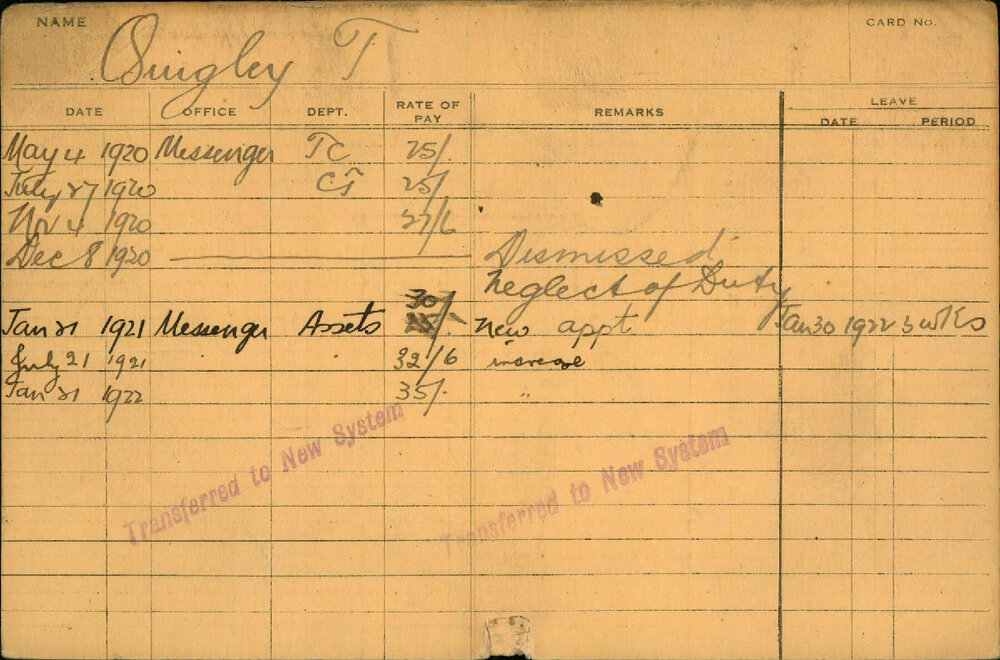 NAME Quigley T CARD No.
LEAVE
DATE OFFICE DEPT. RATE OF PAY REMARKS DATE PERIOD
May 4 1920 Messenger TC 25/-
July 27 1920 CT 25/-
Nov 4 1920 27/6
Dec 8 1920 Dismissed
Neglect of Duty
30/-
Jan 21 1921 Messenger Assets New appt Jan 30 1922 3 wks
July 21 1921 32/6 increase
Jan 21 1922 35/- "
Transferred to New System
Transferred to New System